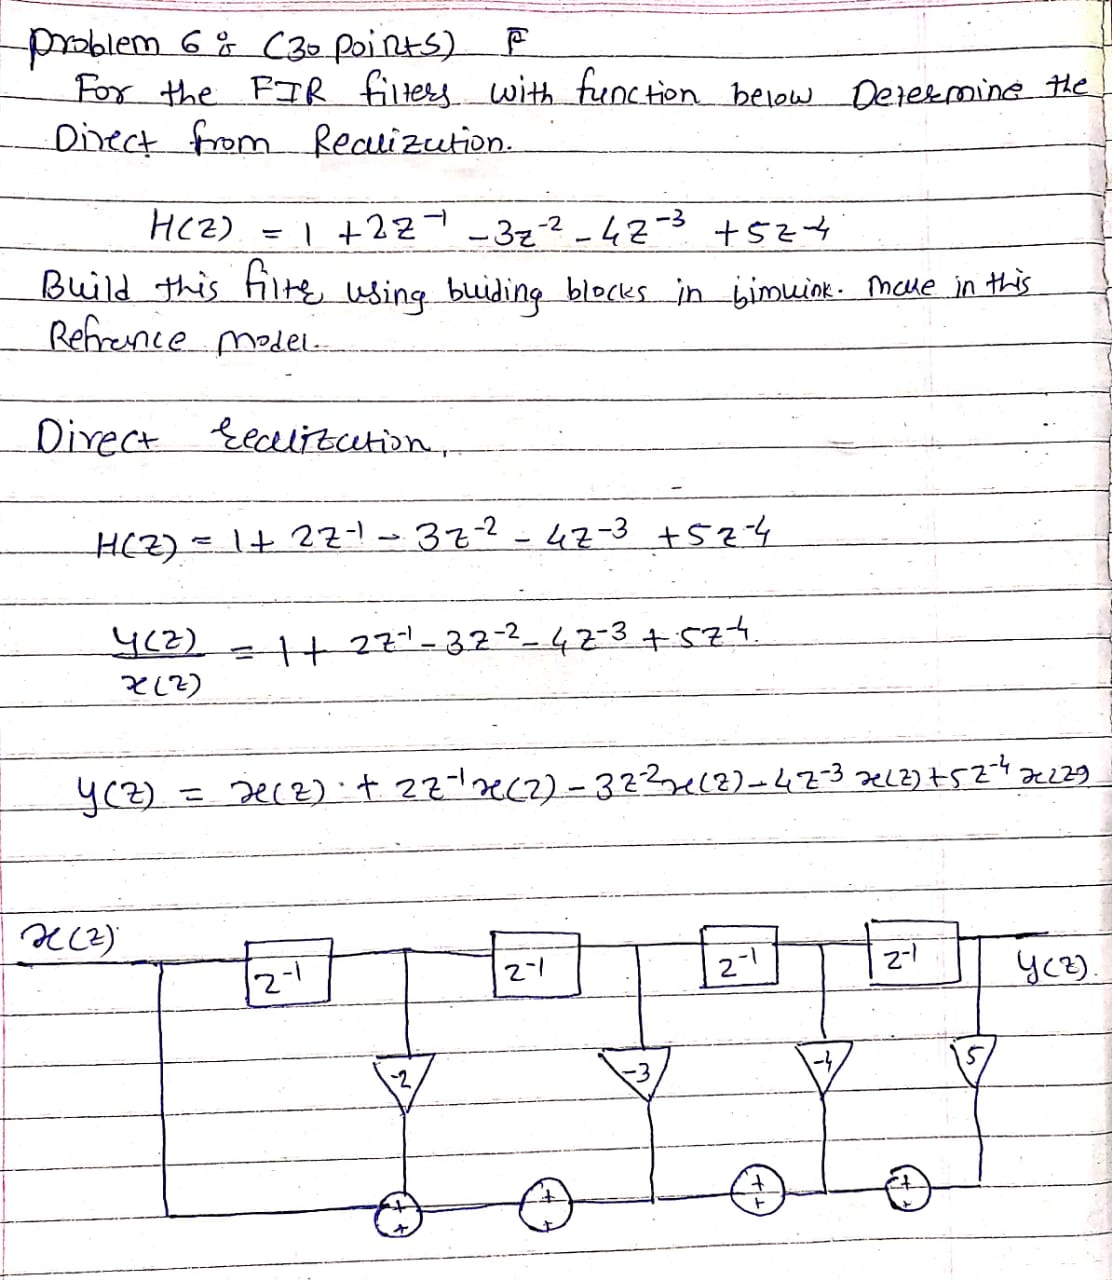 problem 6 : (30 points) F
For the FIR filters with function below Determine the
Direct from Realization.
H(z) = 1 + 2z⁻¹ - 3z⁻² - 4z⁻³ + 5z⁻⁴
Build this filte using buiding blocks in simulink. make in this
Refrence model.
Direct Realization,
H(z) = 1 + 2z⁻¹ - 3z⁻² - 4z⁻³ + 5z⁻⁴
y(z)
x(z)
= 1 + 2z⁻¹ - 3z⁻² - 4z⁻³ + 5z⁻⁴.
y(z) = x(z) + 2z⁻¹x(z) - 3z⁻²x(z) - 4z⁻³ x(z) + 5z⁻⁴ x(z)
x(z)
z⁻¹ z⁻¹ z⁻¹ z⁻¹
y(z).
-2 -3 -4 5
+ + + +
+ + + +